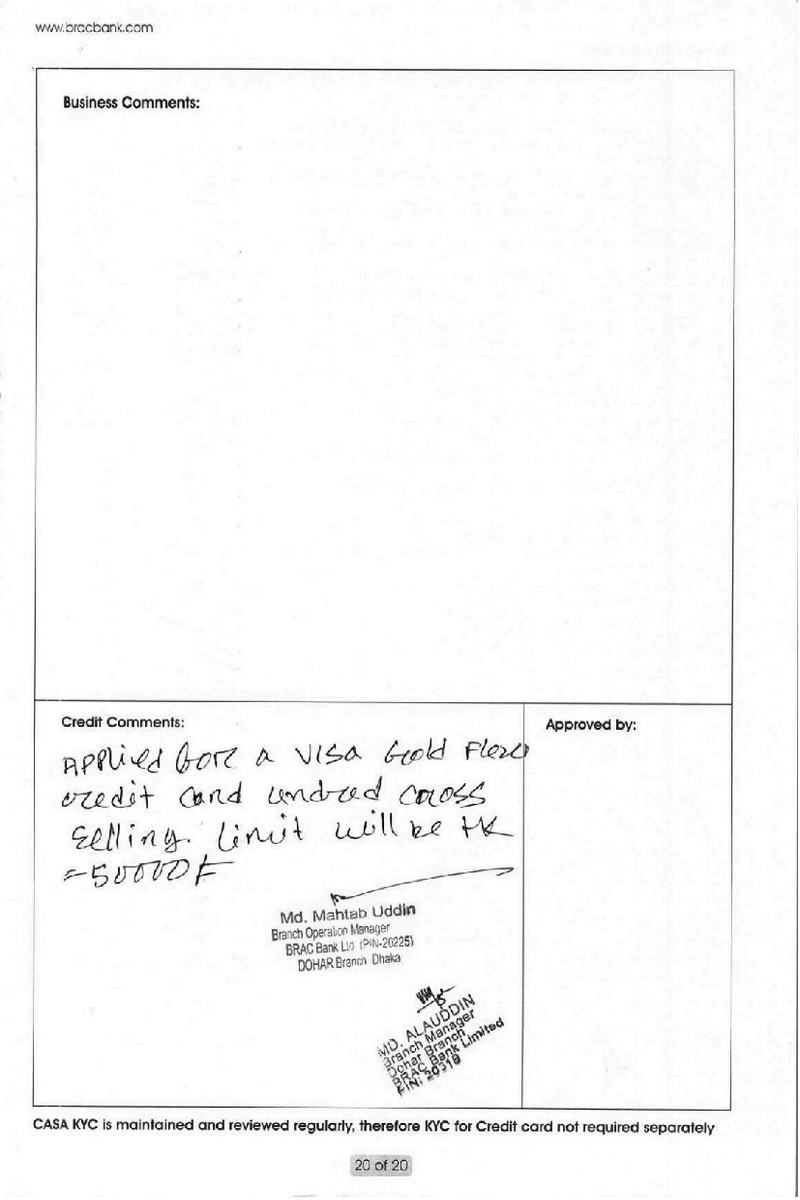 www.bracbank.com
Business Comments:
Credit Comments:
Approved by:
Applied fore a VISA Gold Flexi
credit card undred cross
Selling. Limit will be tk
=50000/=
Md. Mahtab Uddin
Branch Operation Manager
BRAC Bank Ltd (PIN-20225)
DOHAR Branch Dhaka
MD. ALAUDDIN
Branch Manager
Dohar Branch
BRAC Bank Limited
PIN: 20318
CASA KYC is maintained and reviewed regularly, therefore KYC for Credit card not required separately
20 of 20